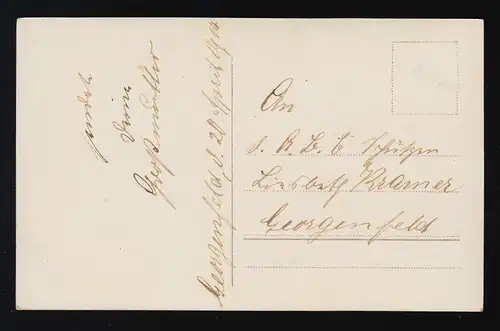 sendet
Deine
Großmutter
Georgenfeld, d. 20 April
An
d. A. B. C Schützen
Liesbeth Kramer
Georgenfeld